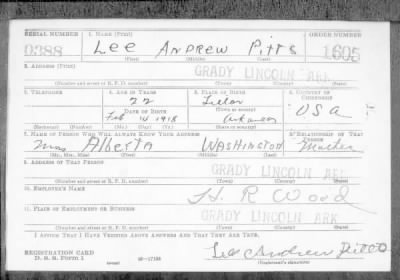 SERIAL NUMBER 1. NAME (Print) ORDER NUMBER
0388 Lee ANDREW Pitts 1605
(First) (Middle) (Last)
2. ADDRESS (Print)
GRADY LINCOLN ARK
(Number and street or R. F. D. number) (Town) (County) (State)
3. TELEPHONE 4. AGE IN YEARS 5. PLACE OF BIRTH 6. COUNTRY OF CITIZENSHIP
22
DATE OF BIRTH (Town or county) USA
Feb 4 1918 Arkansas
(Exchange) (Number) (Mo.) (Day) (Yr.) (State or country)
7. NAME OF PERSON WHO WILL ALWAYS KNOW YOUR ADDRESS 8. RELATIONSHIP OF THAT PERSON
Mrs Alberta WASHINGTON
(Mr., Mrs., Miss) (First) (Middle) (Last)
9. ADDRESS OF THAT PERSON
GRADY LINCOLN ARK
(Number and street or R. F. D. number) (Town) (County) (State)
10. EMPLOYER'S NAME
H. R Wood
11. PLACE OF EMPLOYMENT OR BUSINESS
GRADY LINCOLN ARK
(Number and street or R. F. D. number) (Town) (County) (State)
I AFFIRM THAT I HAVE VERIFIED ABOVE ANSWERS AND THAT THEY ARE TRUE.
REGISTRATION CARD
D. S. S. Form 1 16—17105 Lee Andrew Pitts
(Registrant's signature)